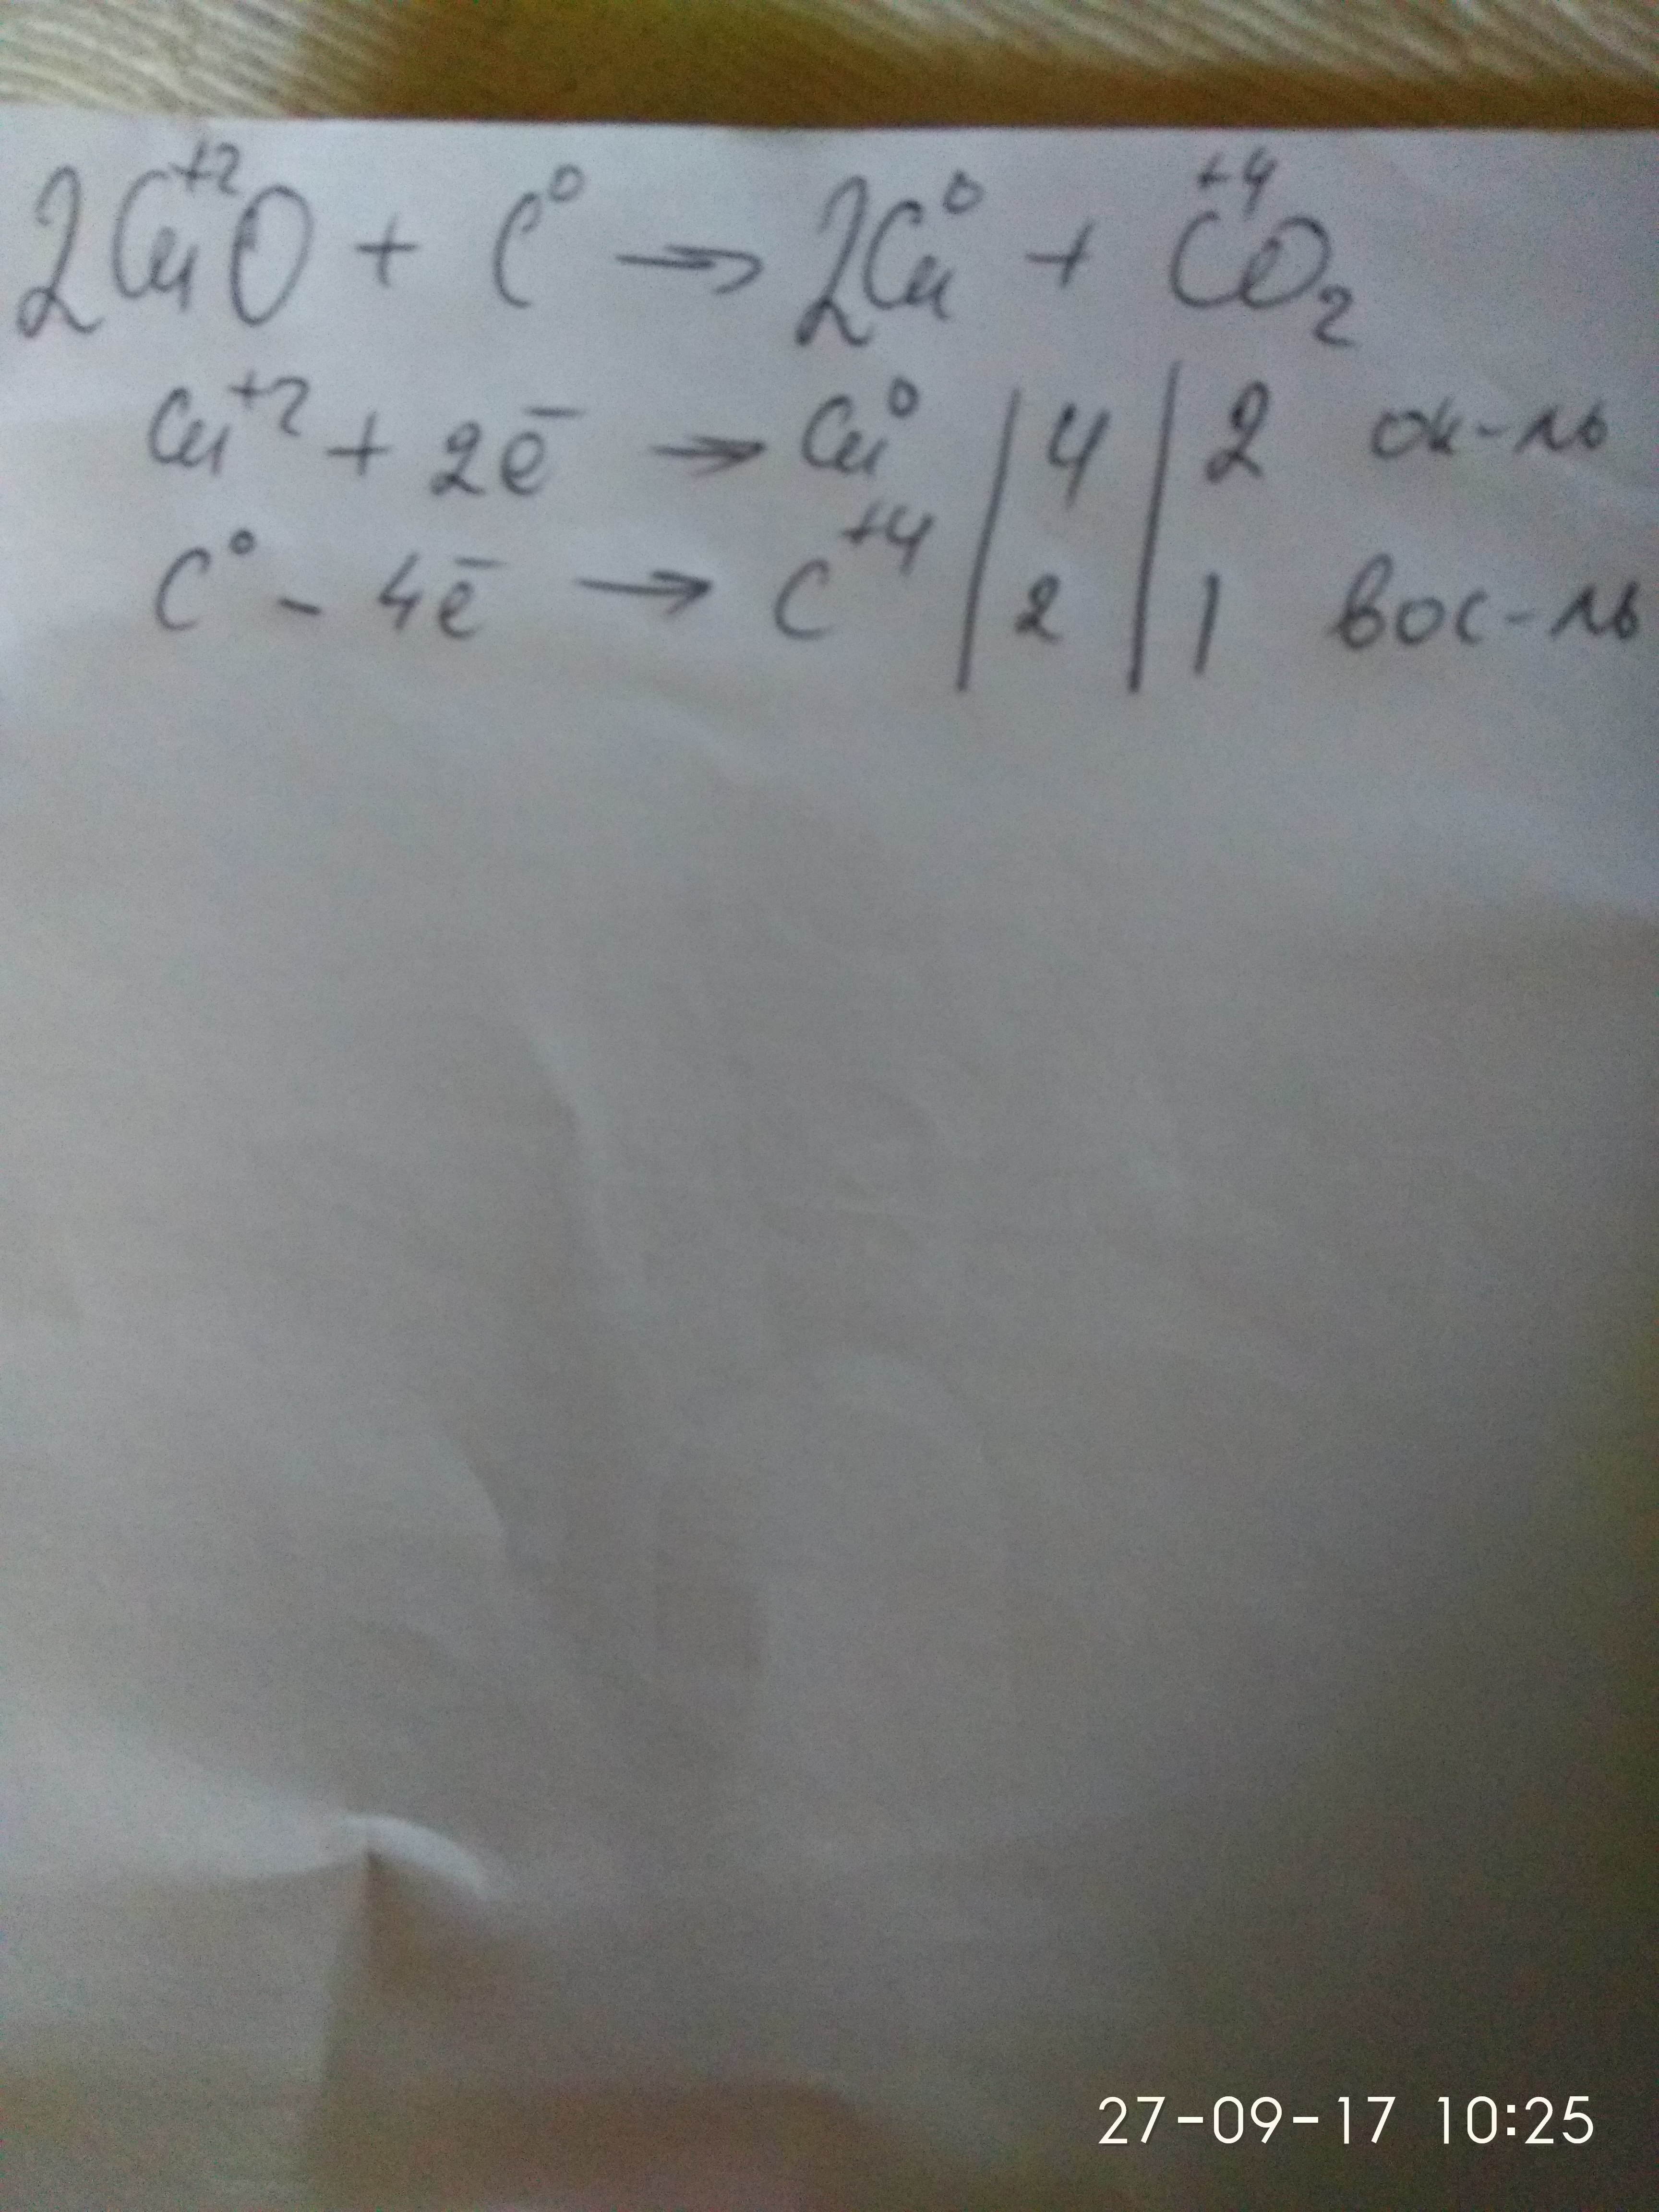 2Cu⁺²O + C⁰ → 2Cu⁰ + C⁺⁴O₂
Cu⁺² + 2ē → Cu⁰ | 4 | 2 ок-ль
C⁰ - 4ē → C⁺⁴ | 2 | 1 вос-ль
27-09-17 10:25